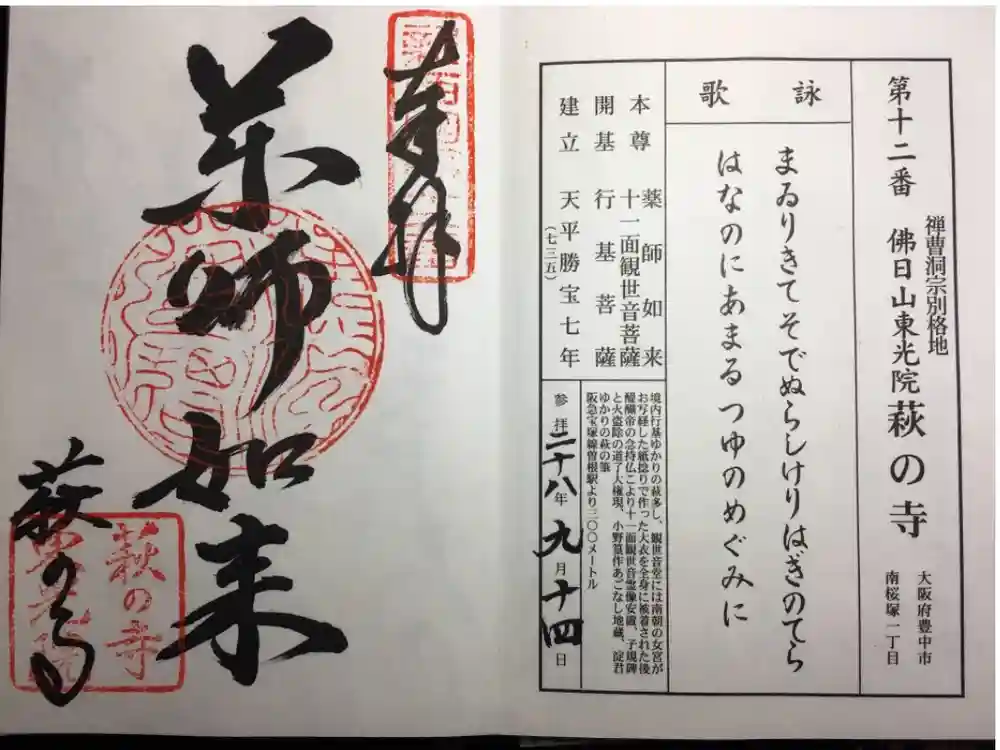 第十二番
禅曹洞宗別格地
佛日山東光院萩の寺
大阪府豊中市
南桜塚一丁目
詠歌
まゐりきてそでぬらしけりはぎのてら
はなのにあまるつゆのめぐみに
本尊 薬師如来
十一面観世音菩薩
開基 行基菩薩
建立 天平勝宝七年
(七三五)
境内行基ゆかりの萩多し、観世音堂には南朝の女宮が
お写経した紙捻りで作った大衣を全身に被着された後
醍醐帝の念持仏こより十一面観世音霊像安置、子規碑
と火盗除の道了大権現、小野篁作あごなし地蔵、淀君
ゆかりの萩の筆
阪急宝塚線曽根駅より三〇〇メートル
参拝 二十八年九月十四日
奉拝
薬師如来
萩の寺
萩の寺